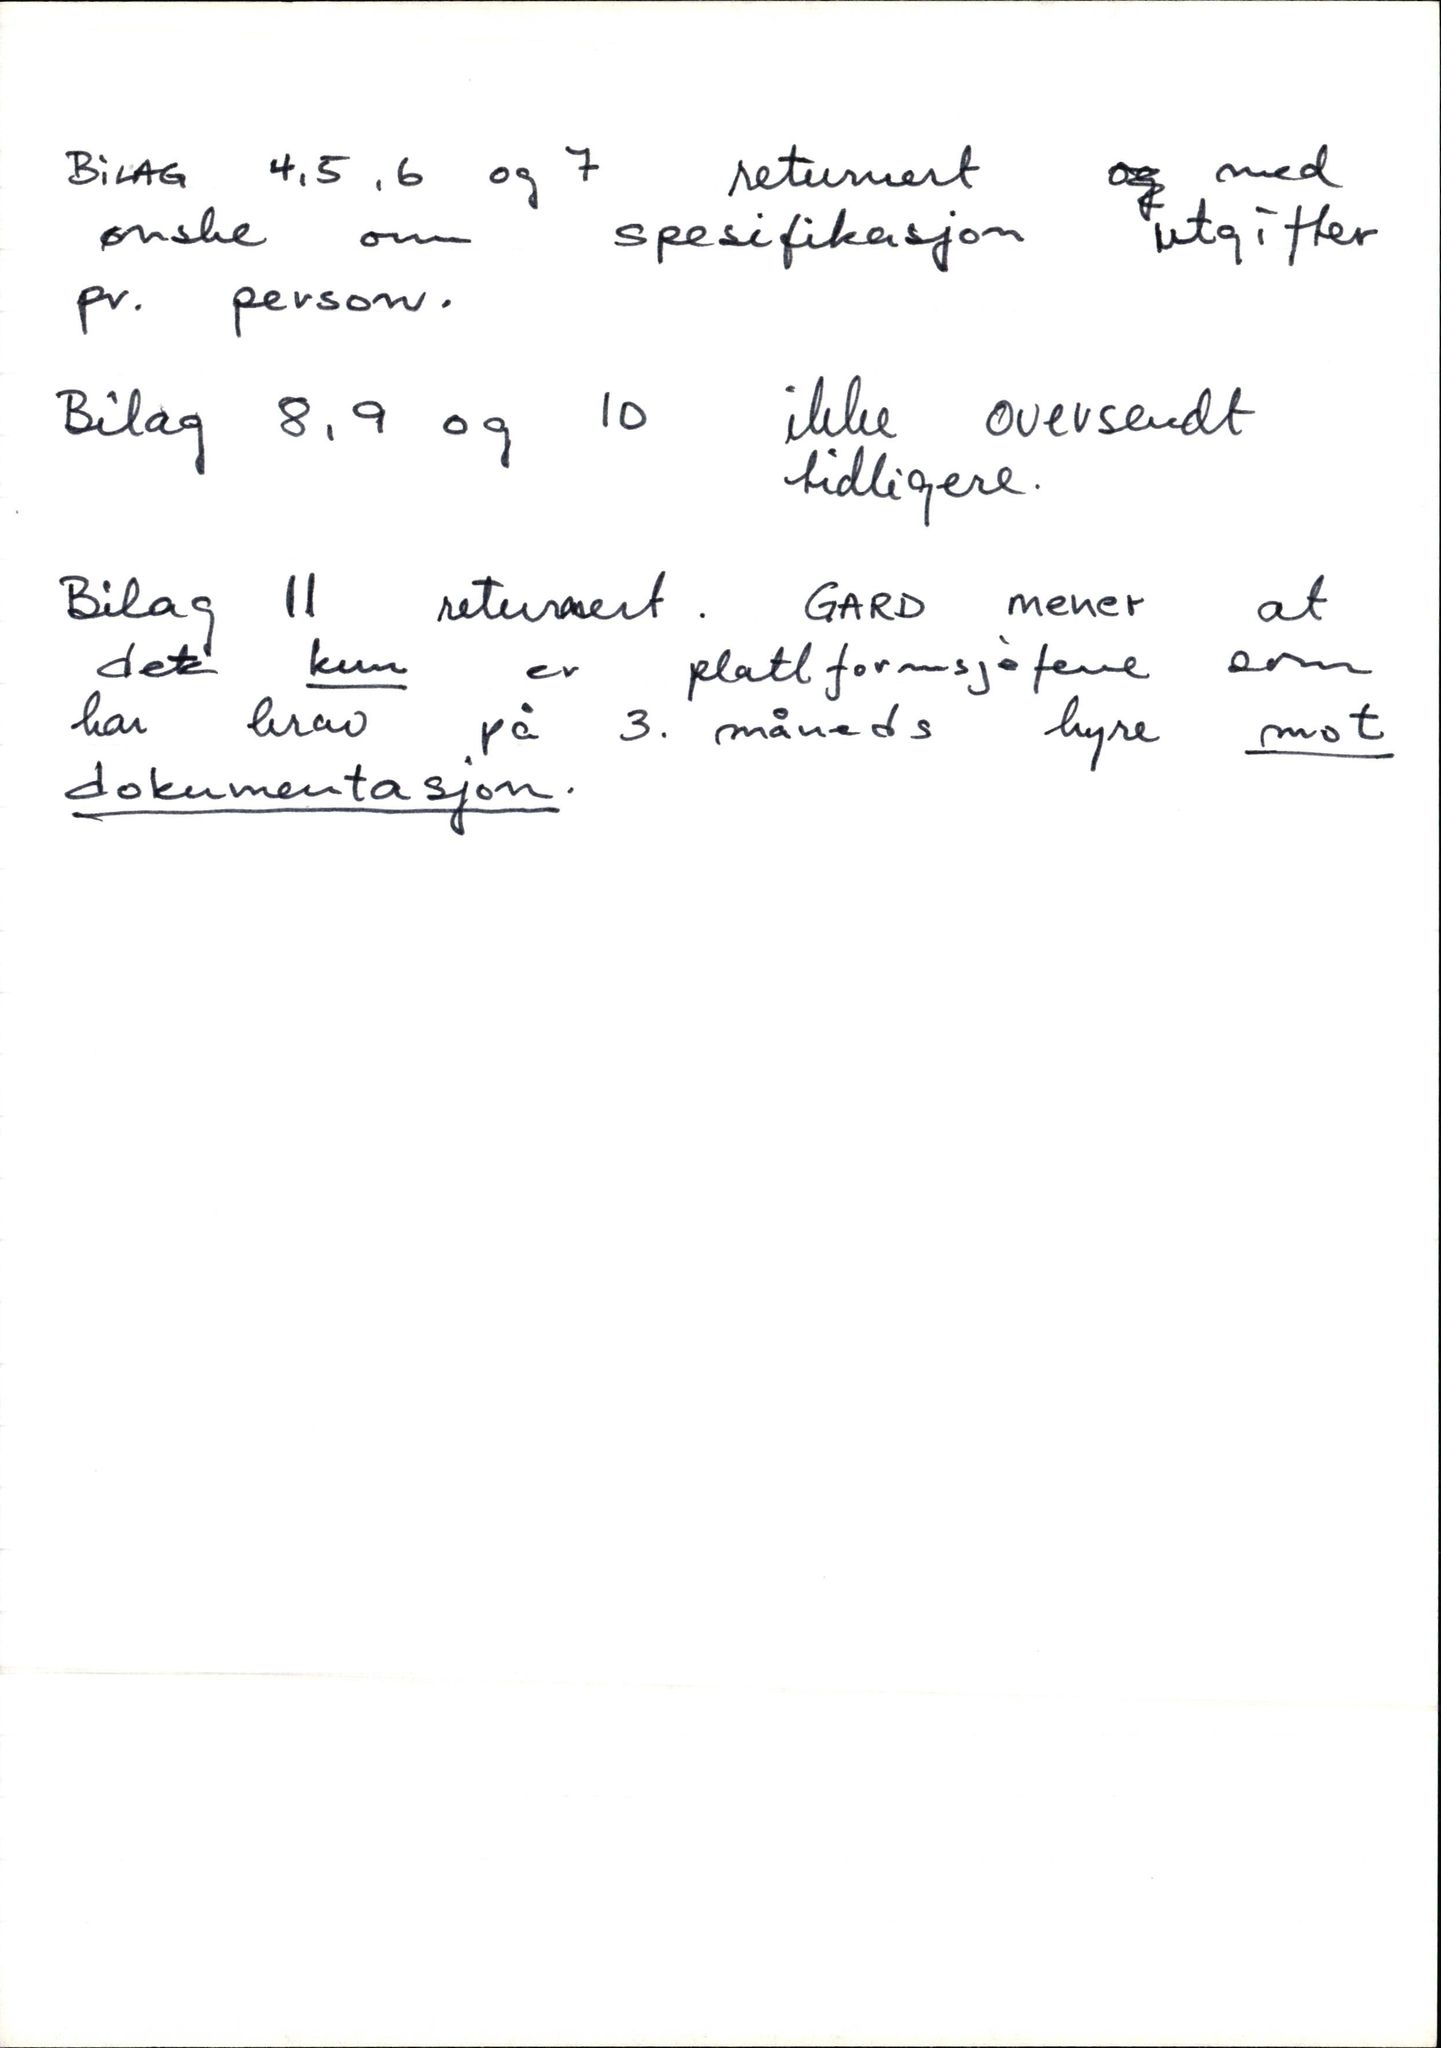 BILAG 4,5,6 og 7 returnert og med
ønske om spesifikasjon utgifter
pr. person.
Bilag 8,9 og 10 ikke oversendt
tidligere.
Bilag 11 returnert. GARD mener at
det kun er plattformsjefene som
har krav på 3. måneds hyre mot
dokumentasjon.